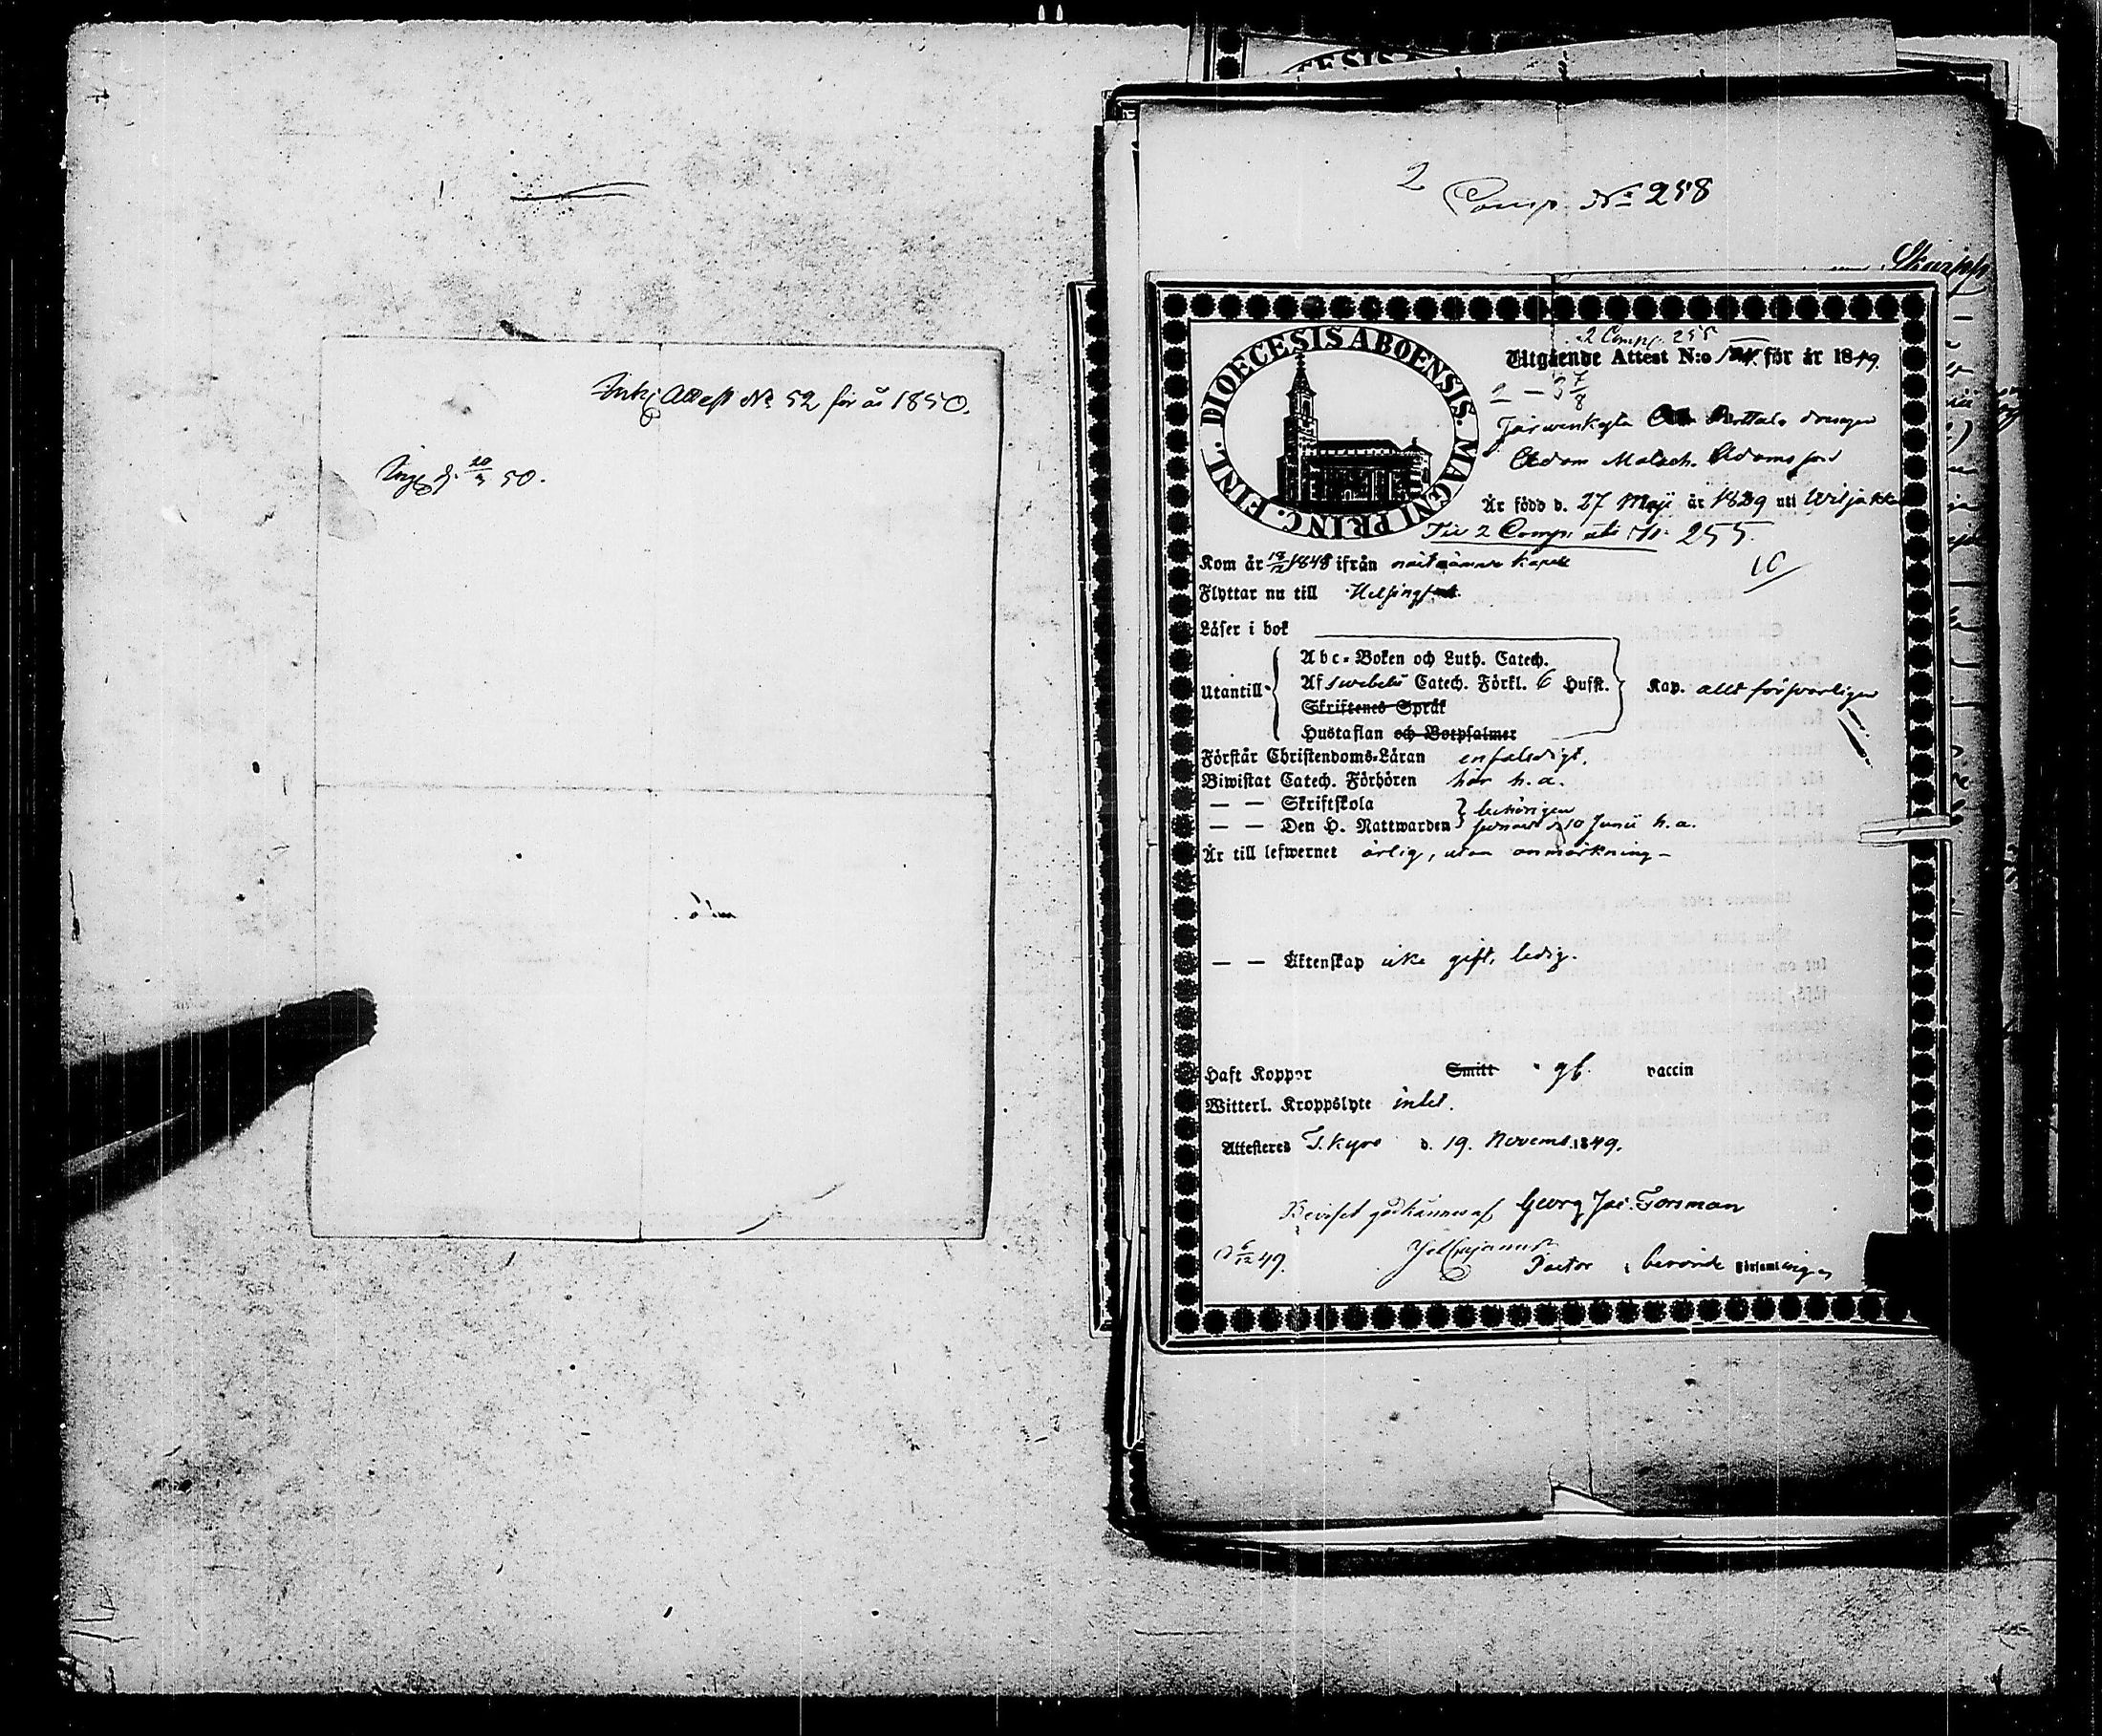 Attest No 52 för år 1850.
20/3 50.
2
Comp. No 258
Skarpp
DIOECESIS ABOENSIS. MAGNI PRINC. FINL.
2 Comp. 255
Utgående Attest N:o för år 1849.
2 — 3 7/8
Järwenkylä drengen
Adam Adamsson
Är född d. 27 Maji år 1829 uti Wiljakka
Till 2 Comp. No 255.
Kom år 18/12 1848 ifrån kapell
10
Flyttar nu till Helsingfors
Läser i bok
Utantill
Abc-Boken och Luth. Catech.
Af Swebelii Catech. Förkl. 6 Hufst. Kap. allt försvarligen
Skriftenes Språk
Hustaflan och Botpsalmer
Förstår Christendoms-Läran enfaldigt.
Biwistat Catech. Förhören här h. a.
— — Skriftskola behörigen
— — Den H. Nattwarden senast d. 10 Junii h. a.
Är till lefwernet ärlig, utan anmärkning –
— — Äktenskap icke gift, ledig.
Haft Koppor Smitt vaccin
Witterl. Kroppslyte intet.
Attesteres T. Kyro d. 19. Novemb. 1849.
Beviset godkännes af Georg Jac. Forsman
D 6/12 49.
Pastor i berörde Församlingen